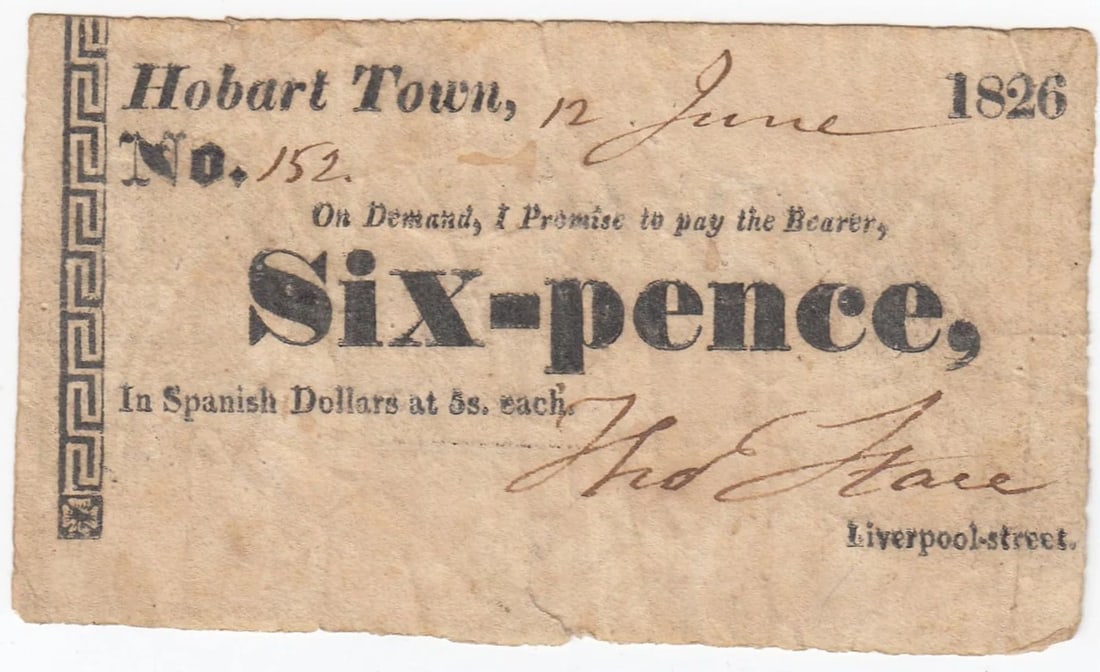 Hobart Town, 12 June 1826
No. 152.
On Demand, I Promise to pay the Bearer,
Six-pence,
In Spanish Dollars at 5s. each.
Tho E Stace
Liverpool-street.